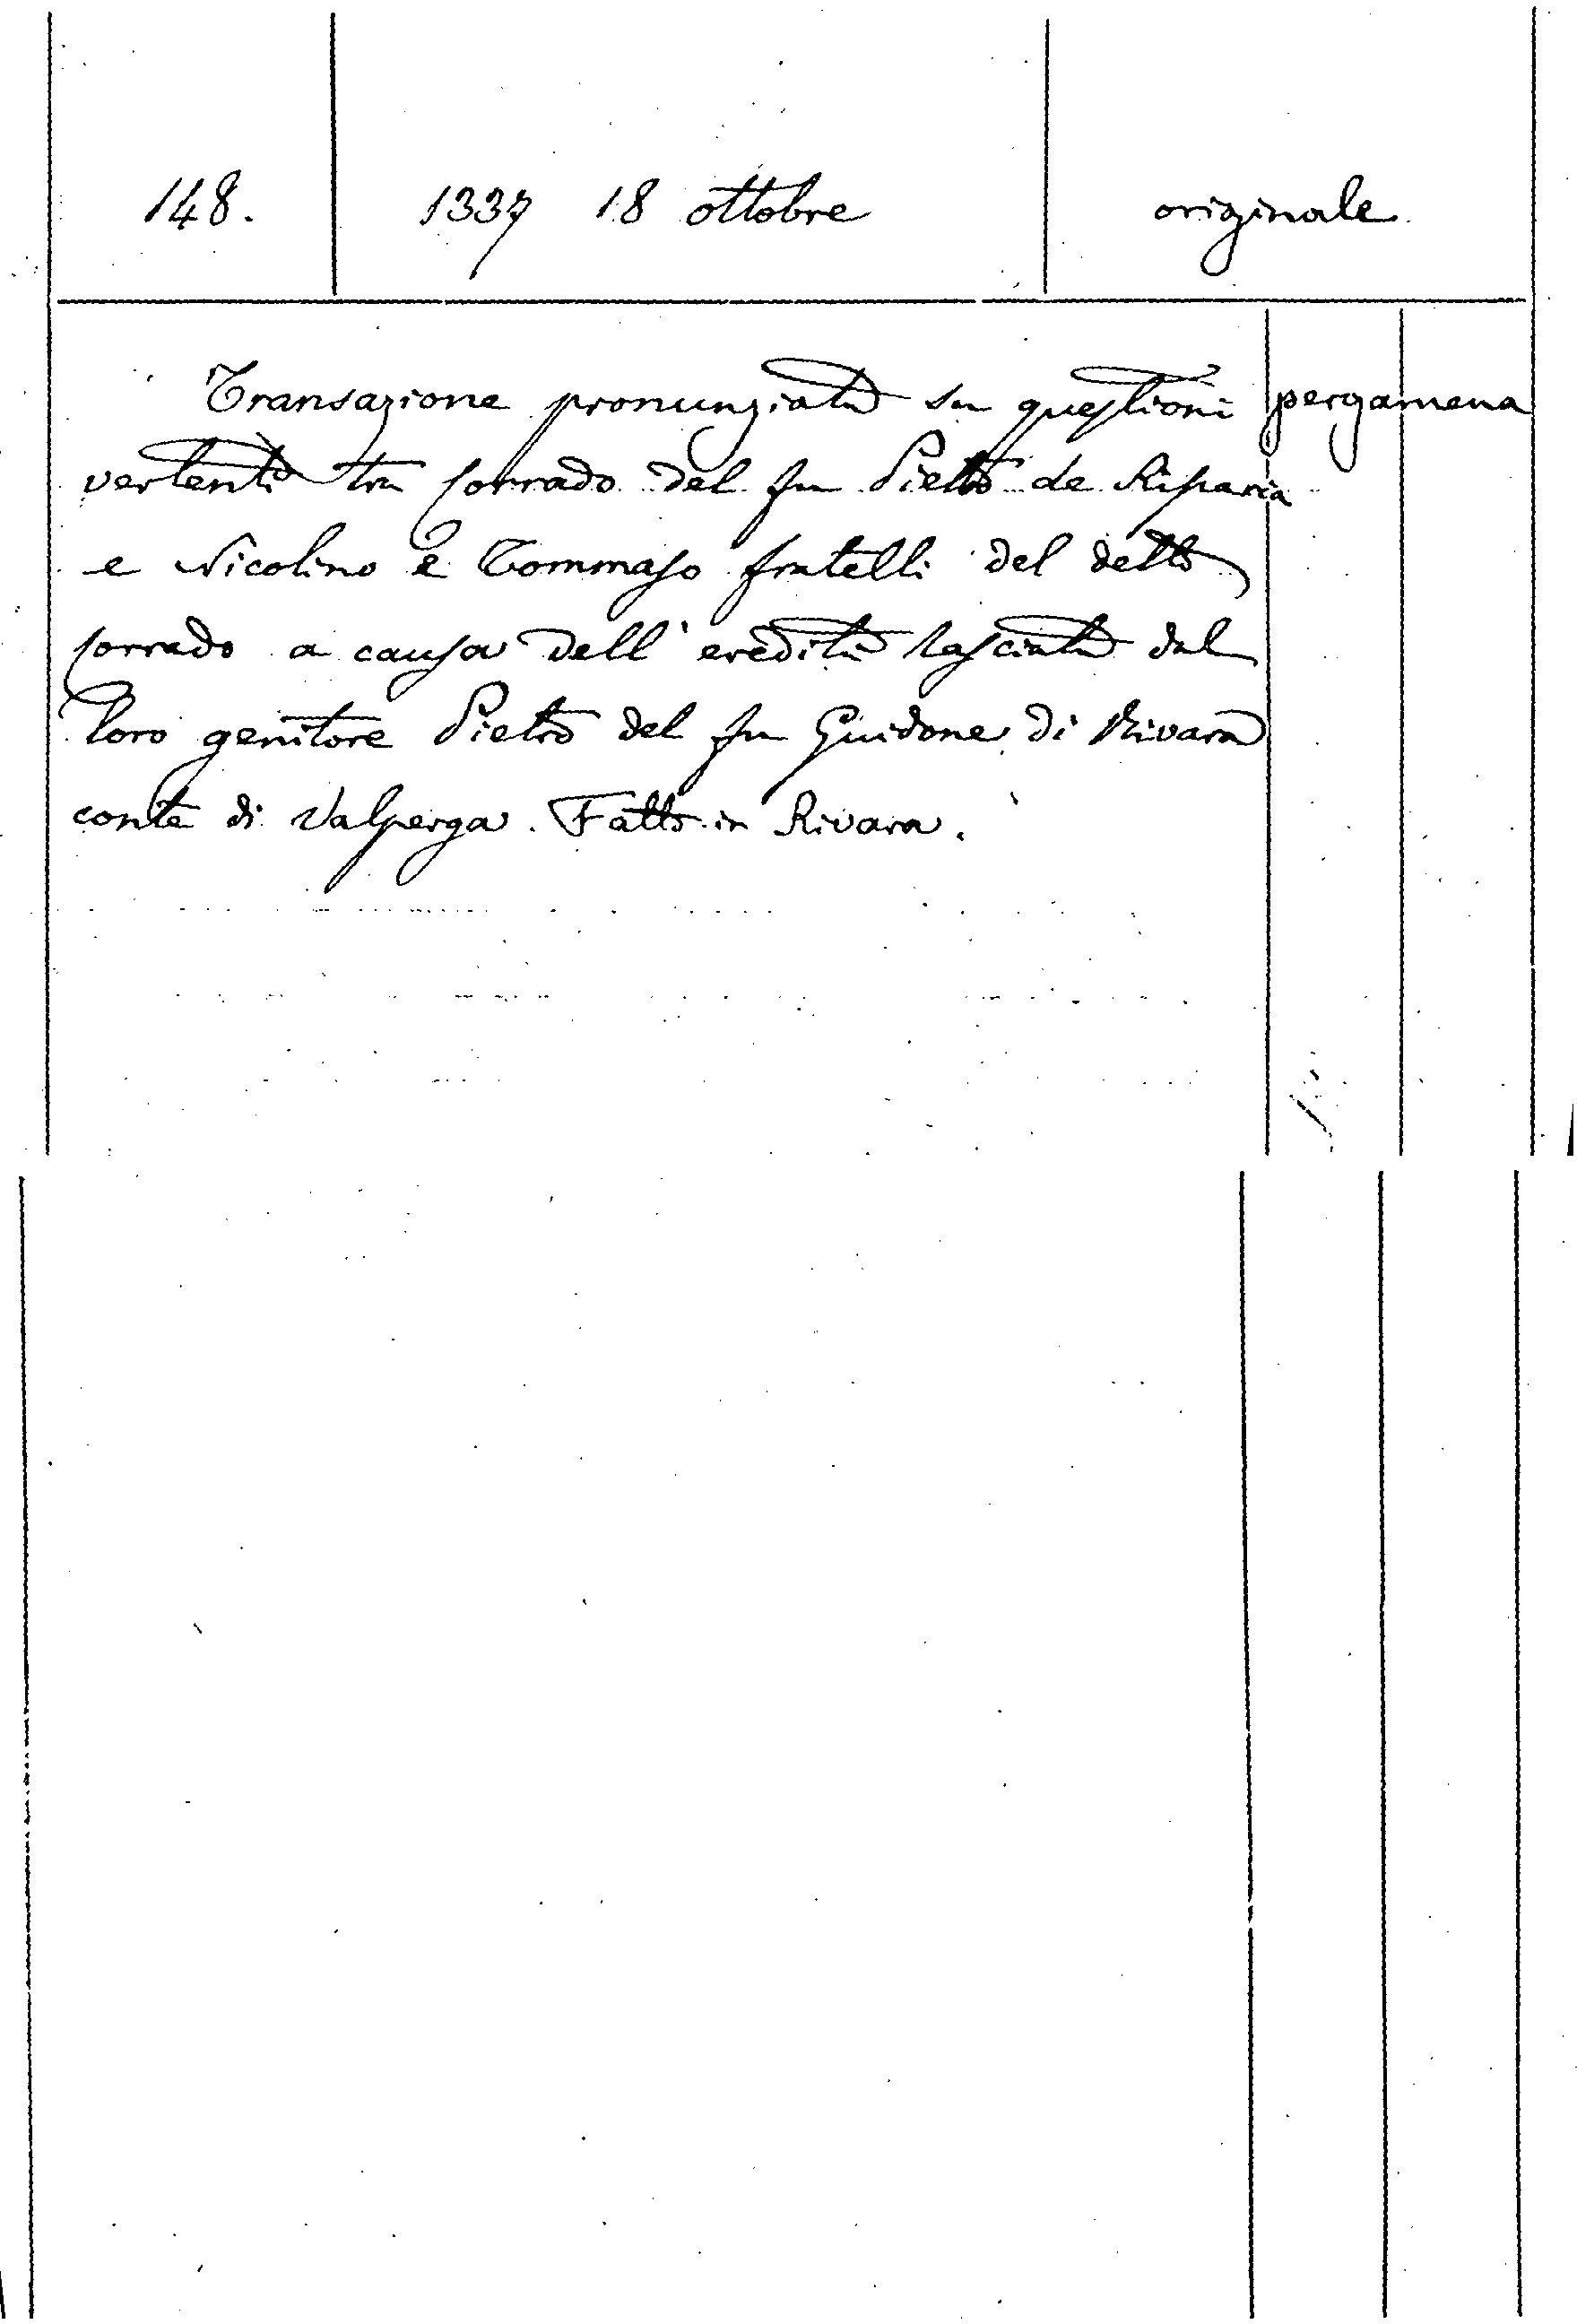 148. 1337 18 ottobre originale
Transazione pronunziata su questioni pergamena
vertenti tra Corrado del fu Pietro de Riparia
e Nicolino e Tommaso fratelli del detto
Corrado a causa dell'eredità lasciata dal
loro genitore Pietro del fu Guidone di Rivara
conte di Valperga. Fatto in Rivara.